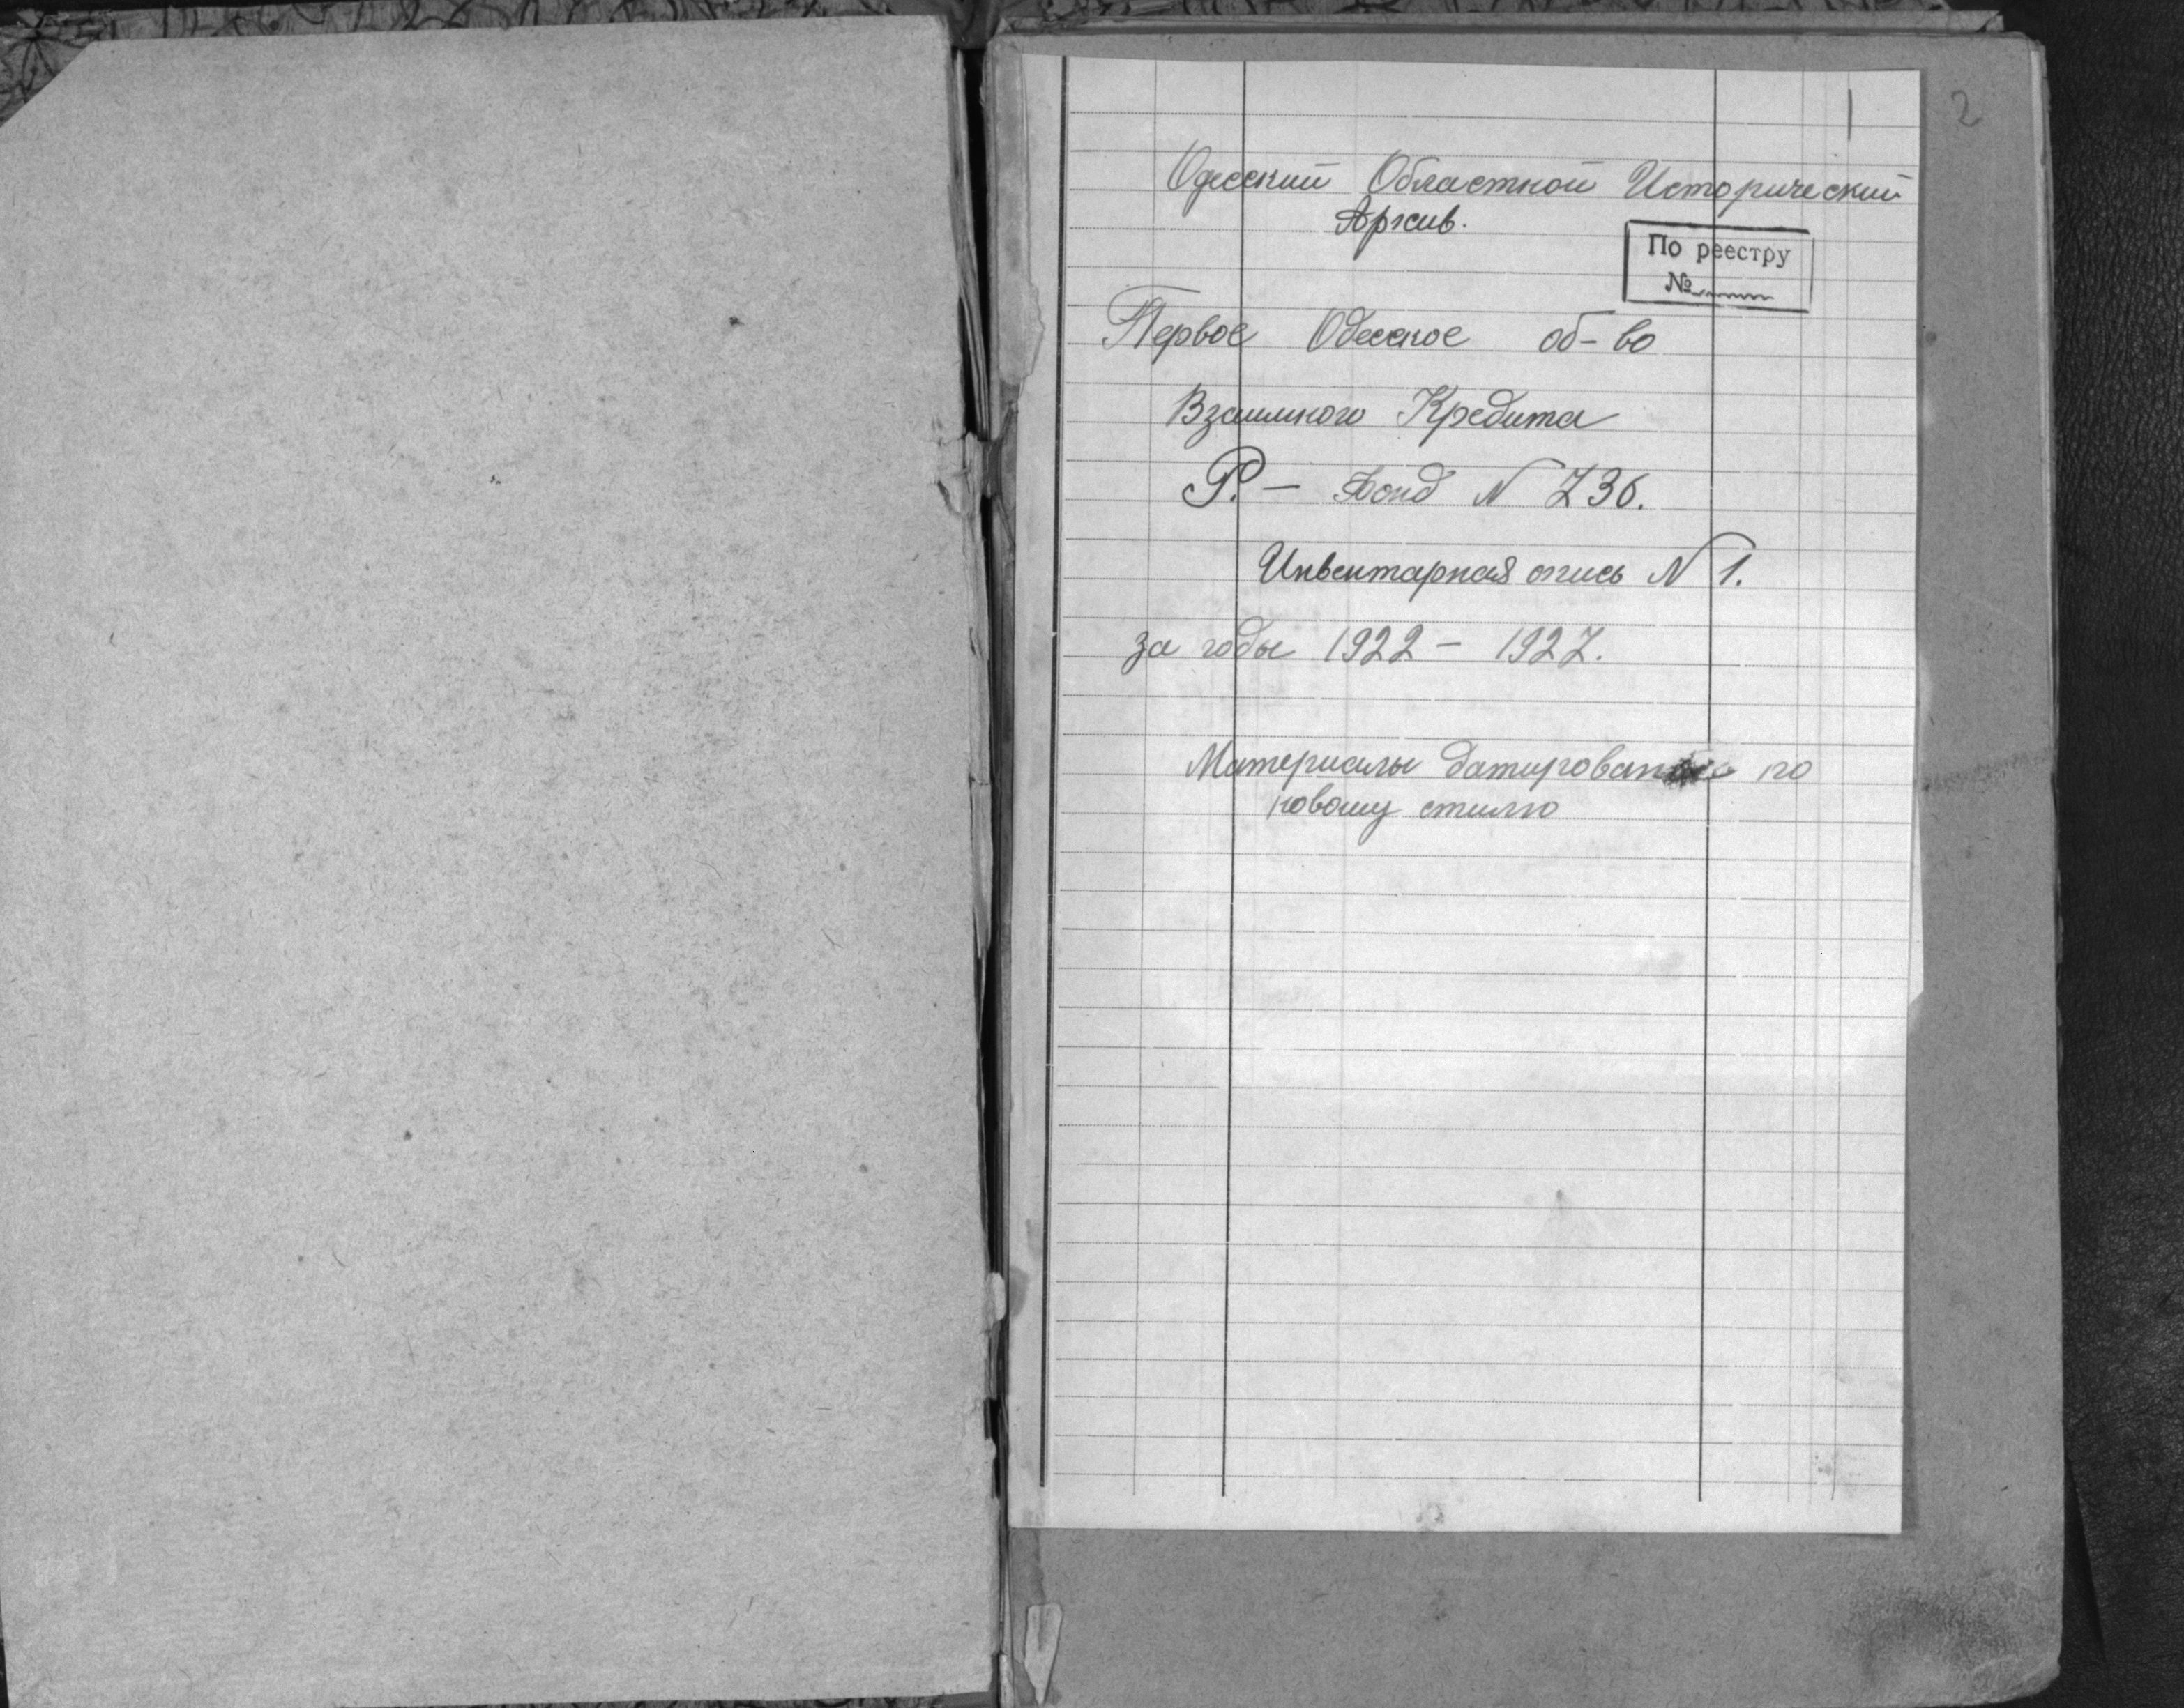 2
1
Одесский Областной Исторический
Архив.
По реестру
№
Первое Одесское об-во
Взаимного Кредита
Р. – Фонд N 736.
Инвентарная опись N 1.
за годы 1922 – 1927.
Материалы датированы по
новому стилю